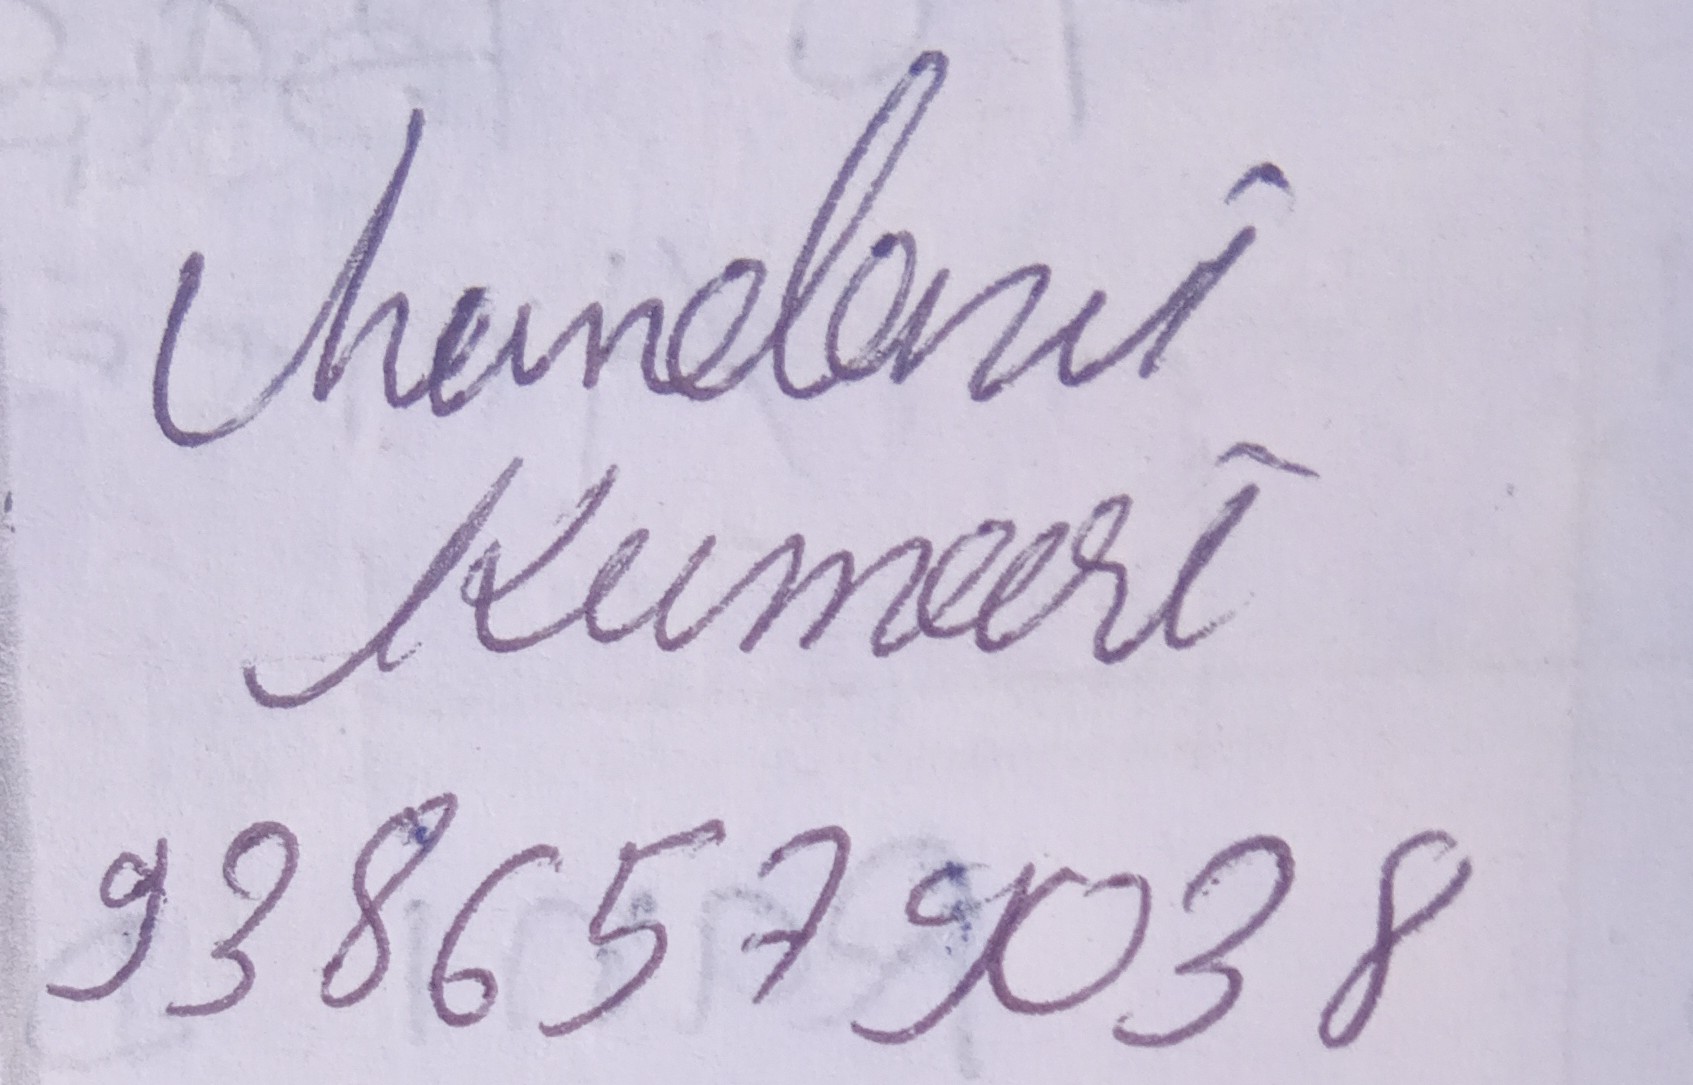 Chandani
Kumari
9386579038